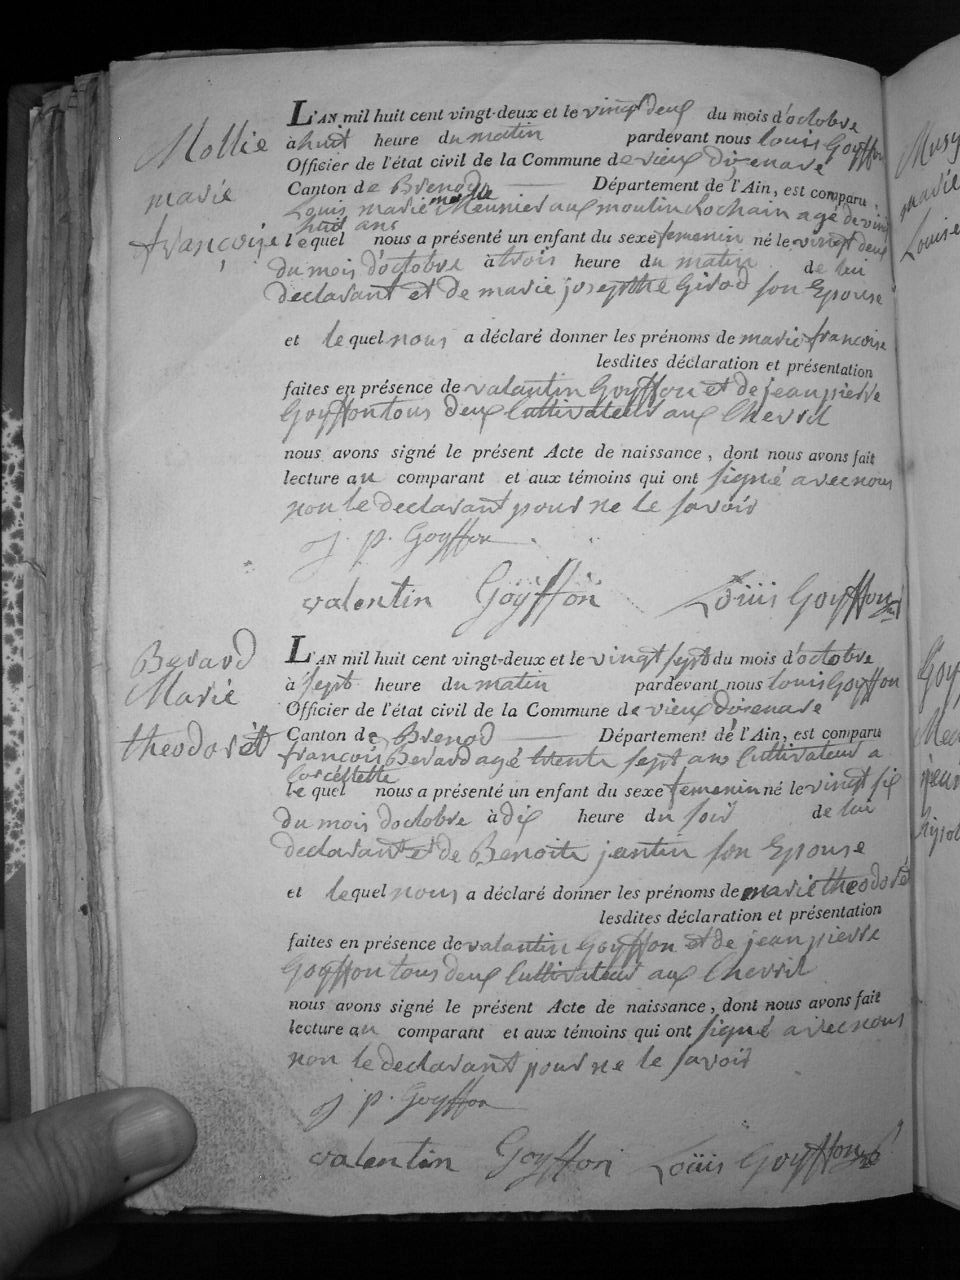 Mollie
marie
françoise
L'AN mil huit cent vingt-deux et le vingt deux du mois d'octobre
à huit heure du matin pardevant nous louis Goyffon
Officier de l'état civil de la Commune de vieux d'izenave
Canton de Brenod Département de l'Ain, est comparu
Louis marie mollie Meunier au moulin Rochain agé de vint
huit ans
lequel nous a présenté un enfant du sexe femenin né le vingt deux
du mois d'octobre à trois heure du matin de lui
declarant et de marie josephthe Girod son Epouse
et lequel nous a déclaré donner les prénoms de marie francoise
lesdites déclaration et présentation
faites en présence de valantin Goyffon et de jean pierre
Goyffon tous deux Cultivateur aux Chevril
nous avons signé le présent Acte de naissance, dont nous avons fait
lecture au comparant et aux témoins qui ont signé avec nous
non le declarant pour ne le savoir
j. p. Goyffon
valentin Goÿffon Loüis Goyffon
Berard
Marie
theodorét
L'AN mil huit cent vingt-deux et le vingt sept du mois d'octobre
à sept heure du matin pardevant nous louis Goyffon
Officier de l'état civil de la Commune de vieux d'izenave
Canton de Brenod Département de l'Ain, est comparu
françois Berard agé trente sept ans Cultivateur a
Corcelette
lequel nous a présenté un enfant du sexe femenin né le vingt six
du mois doctobre à dix heure du soir de lui
declarant et de Benoite jantin son Epouse
et lequel nous a déclaré donner les prénoms de marie theodoré
lesdites déclaration et présentation
faites en présence de valantin Goyffon et de jean pierre
Goyffon tous deux Cultivateur aux Chevril
nous avons signé le présent Acte de naissance, dont nous avons fait
lecture au comparant et aux témoins qui ont signé avec nous
non le declarant pour ne le savoir
j. p. Goyffon
valentin Goyffon Loüis Goyffon
Musy
marie
Louise